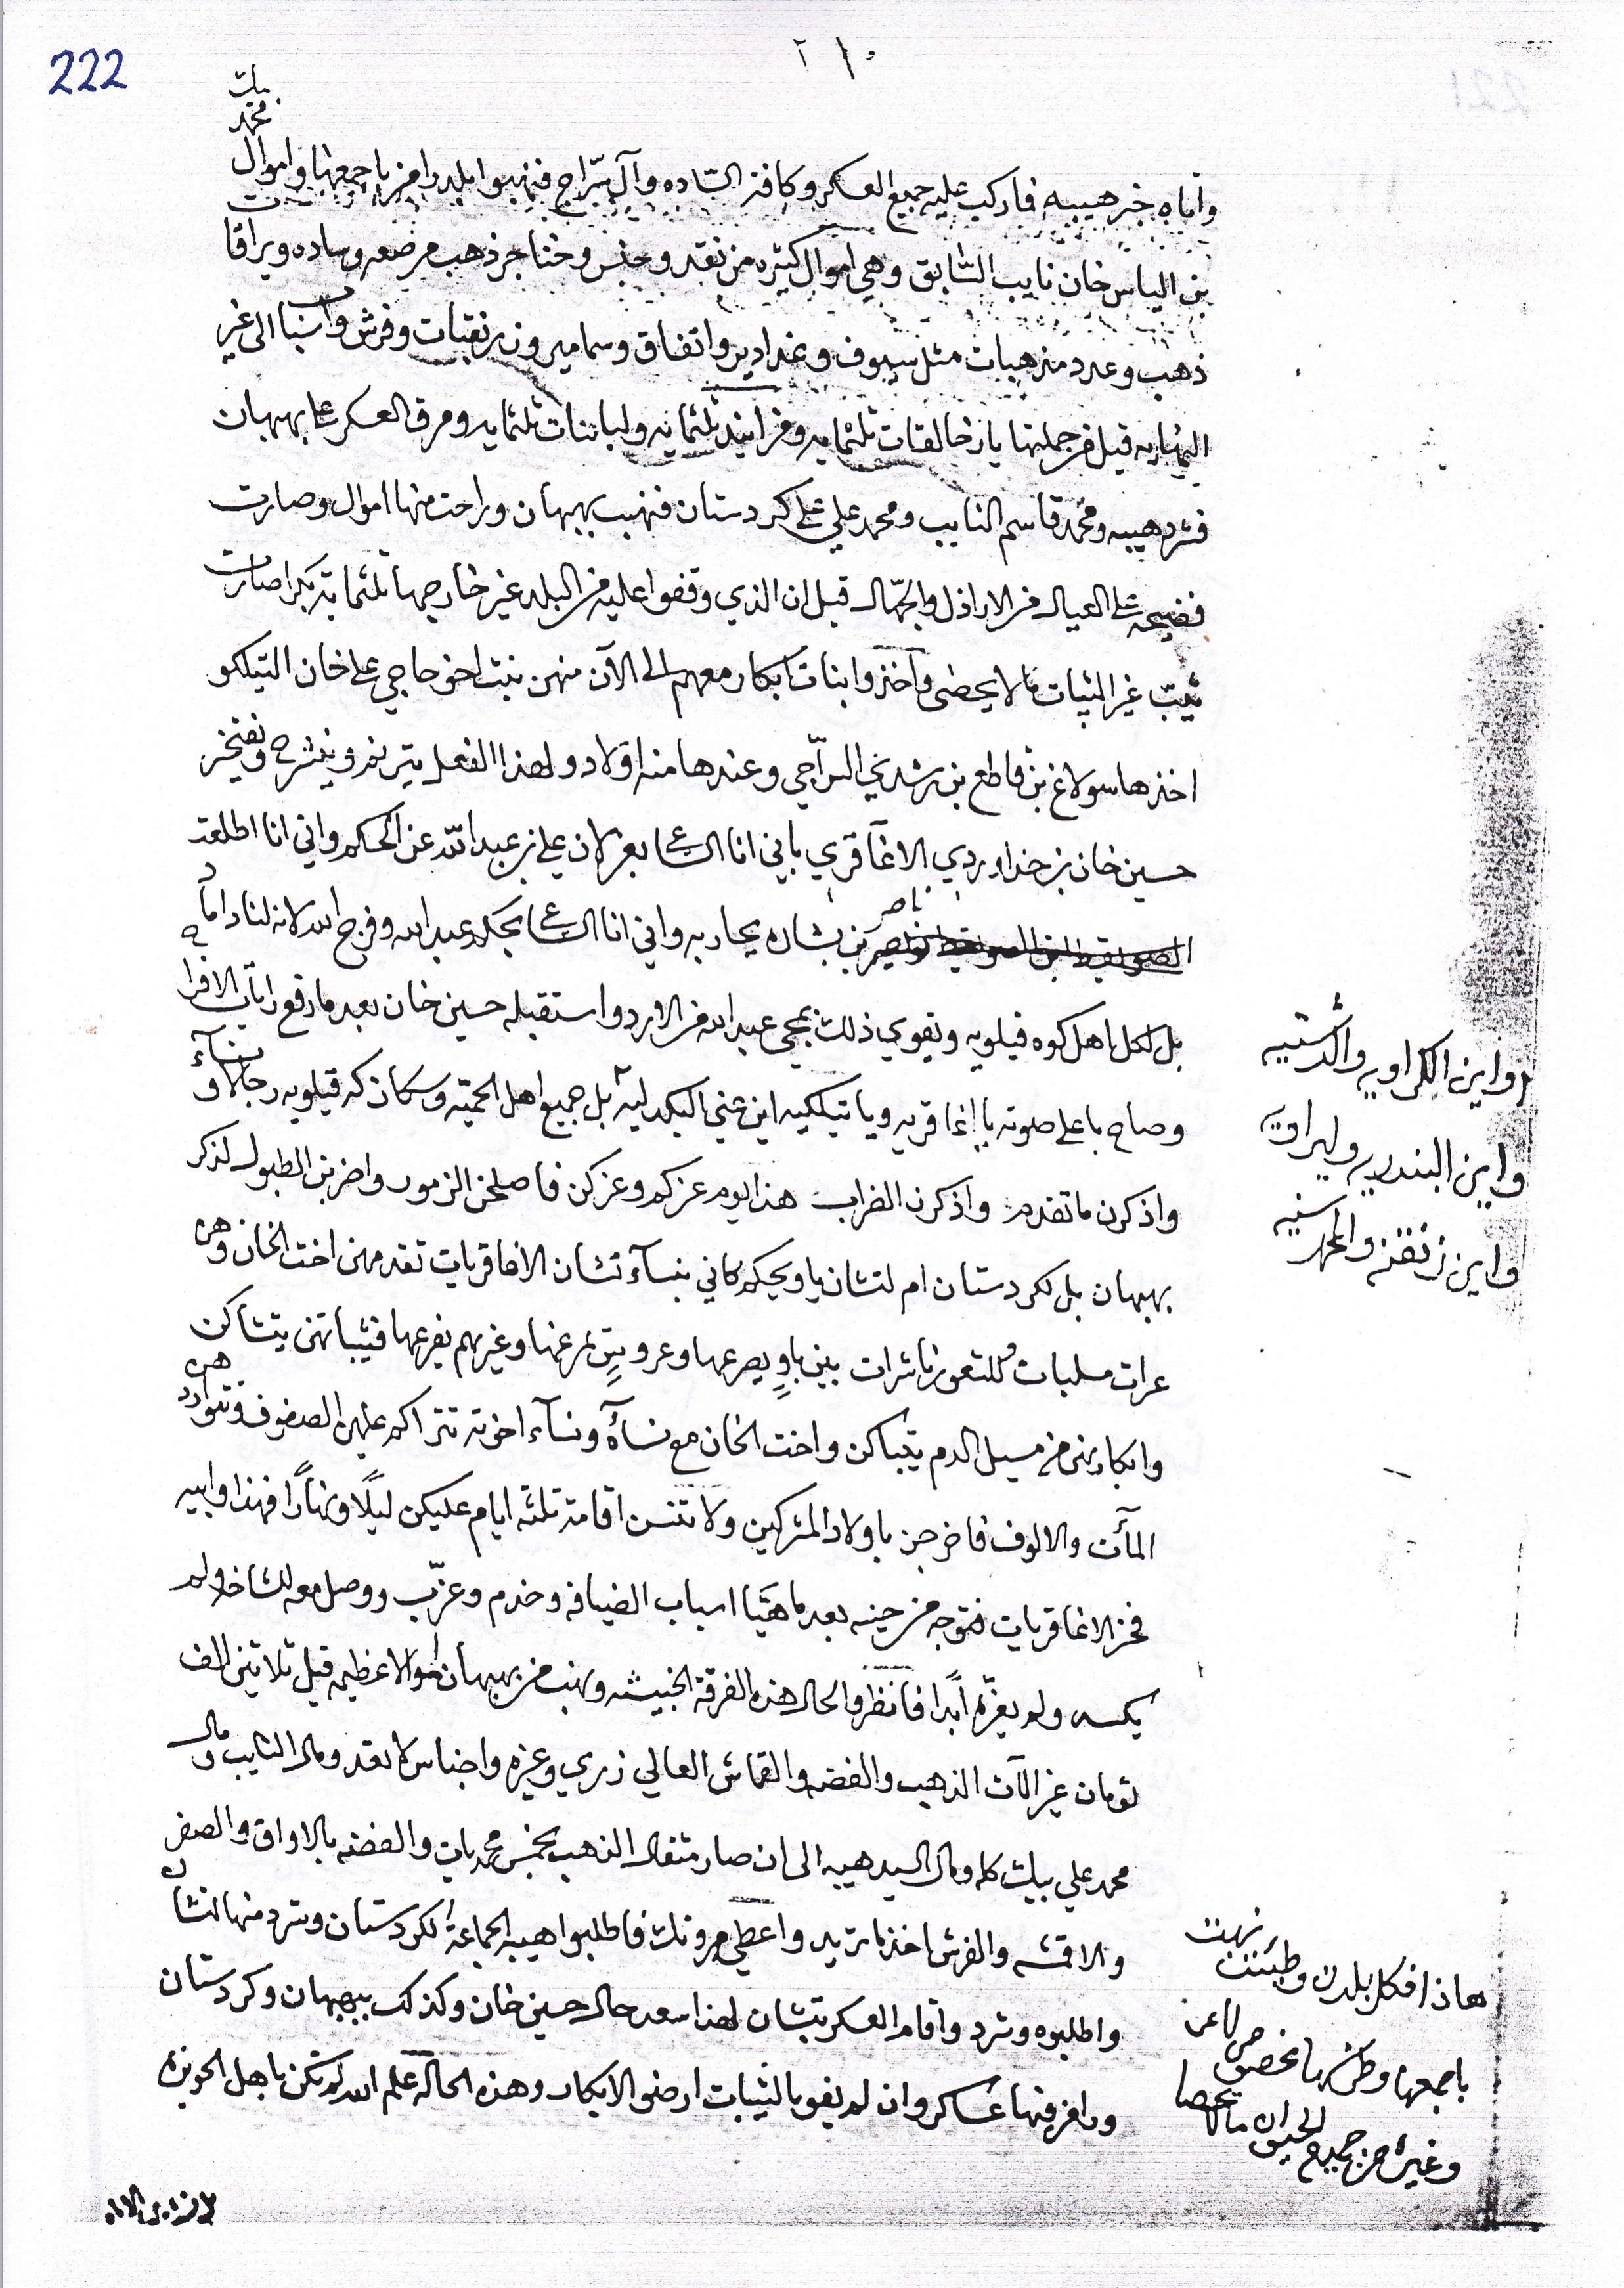 222
بيك
محمد
واتاه خبر هيبه فاركب عليه جميع العسكر وكافة الساده وآل سراج فنهبوا بلد رامز باجمعها واموال
بن الياس خان نايب السابق وهي اموال كثيره من نقد وجنس وخناجر ذهب مرصعه وساده ويراقات
ذهب وعدد مذهبات مثل سيوف وغدادير واتفاق وسمامير وزرنقبات وفرش واسبابا الى غير
النهايه قيل من جملتها ثلثمايه ثلثمايه ولباتنات ثلثمايه ومرق العسكر على بهبهان
فشرد هيبه ومحمد قاسم النايب ومحمد علي على كردستان فنهب بهبهان وراحت منها اموال وصارت
فضيحه على العيال من الاراذل والجهال قيل ان الذي وقفوا عليه من البلد غير خارجها ثلثماية بكرا صارت
ثيب غير الثيبات ما لا يحصى واخذوا بنات ابكار معهم الى الآن منهن بنت اخو حاجي علي خان التيلكو
اخذها سولاغ بن قاطع بن رشد السراجي وعندها منه اولاد ولهذا الفعل يتريد وينشرح ويفتخر
حسين خان بن خداويردي الاغاقري باني انا الساعي بعزلان علي بن عبد الله عن الحكم واني انا اطلعت
ناصر بن بشاره يحاربه واني انا الساعي بحكم عبد الله وفرج الله لانه لنا داماد
بل لكل اهل كوه قيلويه ويقوي ذلك بمجي عبد الله من الاردو استقبله حسين خان بعد ما رفع رايات الافراح
وصاح باعلى صوته يا اغاقريه ويا تيلكيه اين عني البكدليه بل جميع اهل الحميه وسكان كه قيلويه رجالا ونساء
واين الكراويه والدشتيه
واين البندريه وليراوي
واين زنقنه والمهرسنيه
واذكرن ما تقدم واذكرن الضراب هذا يوم عزكم وعزكن فاصلحن الزمور واضربن الطبول لذكر
بهبهان بل لكردستان ام لتشان يا ويحكم كاني بنساء تشان الاغاقريات تقدمهن اخت الخان وهن
عرات مسلبات وللشعور ناشرات بين باو يصرعها وغيرهم يفرعها فثيباتهن يتشاكن
وابكارهن من مسيل الدم يتباكن واخت الخان مع نسآه ونسآء اخوته تتراكم عليهن الصفوف وتتوارد
المآت والالوف فاخرجن باولاد المشركين ولا تنسن اقامة ثلثه ايام عليكن ليلا ونهارا فهذا وابيه
فخر الاغاقريات فتوجه من حينه بعد ما هيا اسباب الضيافه وخدم وعزب ووصل معه لشاخه ولم
يكسه ولم يعزه ابدا فانظروا لحال هذه الفرقة الخبيثه ونهب من بهبهان اموالا عظيمه قيل ثلاثين الف
تومان غير آلات الذهب والفضه والقماش العالي زري وغيره واجناس لا تعد ومال النايب ومال
محمد علي بيك كله ومال السيد هيبه الى ان صار مثقال الذهب بخمس محمديات والفضه بالاواق والصفر
والاقمشه والفرش اخذ ما تريد واعطي مرونك فاطلبوا هيبه الجماعة لكردستان وشرد منها لتشان
واطلبوه وشرد واقام العسكر بتشان لهذا سعد حال حسين خان وكذلك ببهبهان وكردستان
ورامز فيها عساكر وان لم يفو بالثيبات ارضو الابكار وهذه الحاله علم الله لم تكن باهل الحويزه
هاذا فكل بلدن وطيئت نهبت
باجمعها وطرشها بخصوص لاعن
وغيره من جميع الحيوان ما لا يحصا